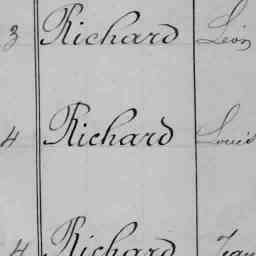 3 Richard Léon
4 Richard Louis
4 Richard Jean